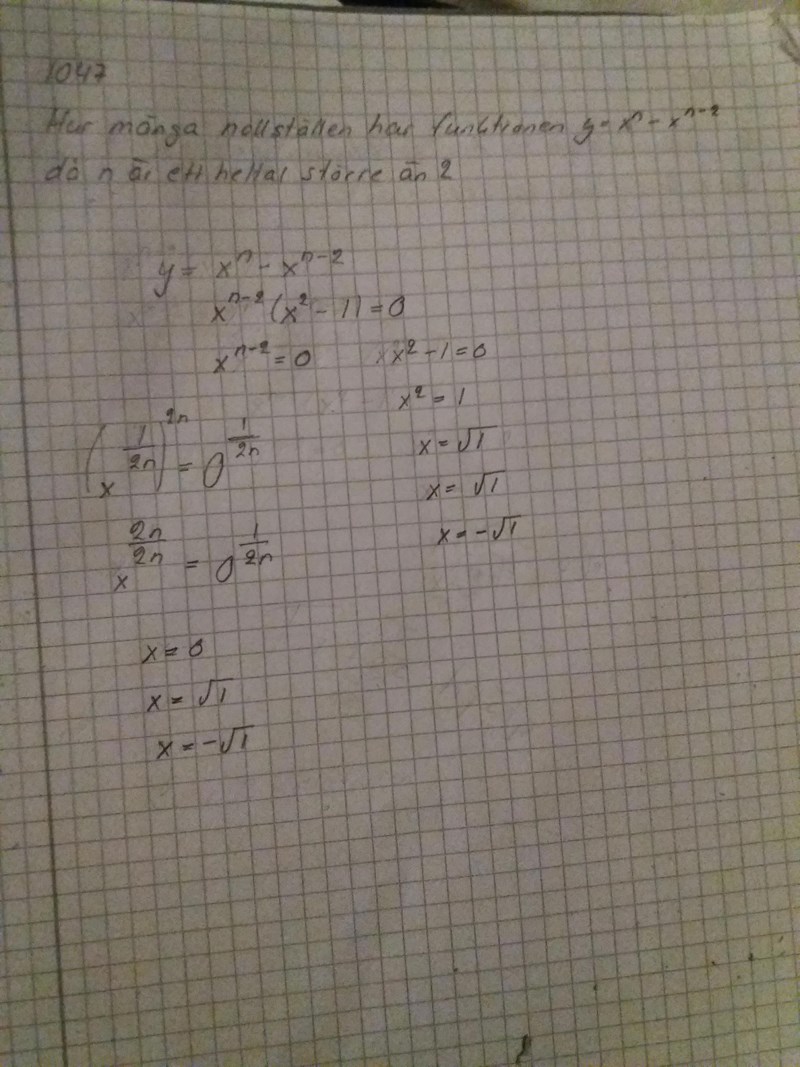 1047
Hur många nollställen har funktionen y = xⁿ - xⁿ⁻²
då n är ett heltal större än 2
y = xⁿ - xⁿ⁻²
xⁿ⁻² (x² - 1) = 0
xⁿ⁻² = 0    x² - 1 = 0
x² = 1
(x^(1/2n))^2n = 0^(1/2n)    x = √1
x = √1
x^(2n/2n) = 0^(1/2n)    x = -√1
x = 0
x = √1
x = -√1